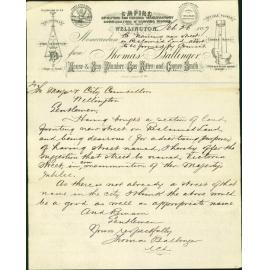 EMPIRE
WELLINGTON,
Feb 26 1897
Memorandum
from Thomas Ballinger
House & Gas Plumber, Gas Fitter and Copper Smith
To Mayor & City Councillors
Wellington
Gentlemen,
Having bought a section of land,
fronting new street on Reclaimed Land
and being desirous (for advertising purposes)
of having street named, I hereby offer the
suggestion that street be named Victoria
Street in commemoration of Her Majesty's
Jubilee.
As there is not already a street of that
name in the city I think the above would
be a good as well as appropriate name
And Remain
Gentlemen
Yours respectfully
Thomas Ballinger